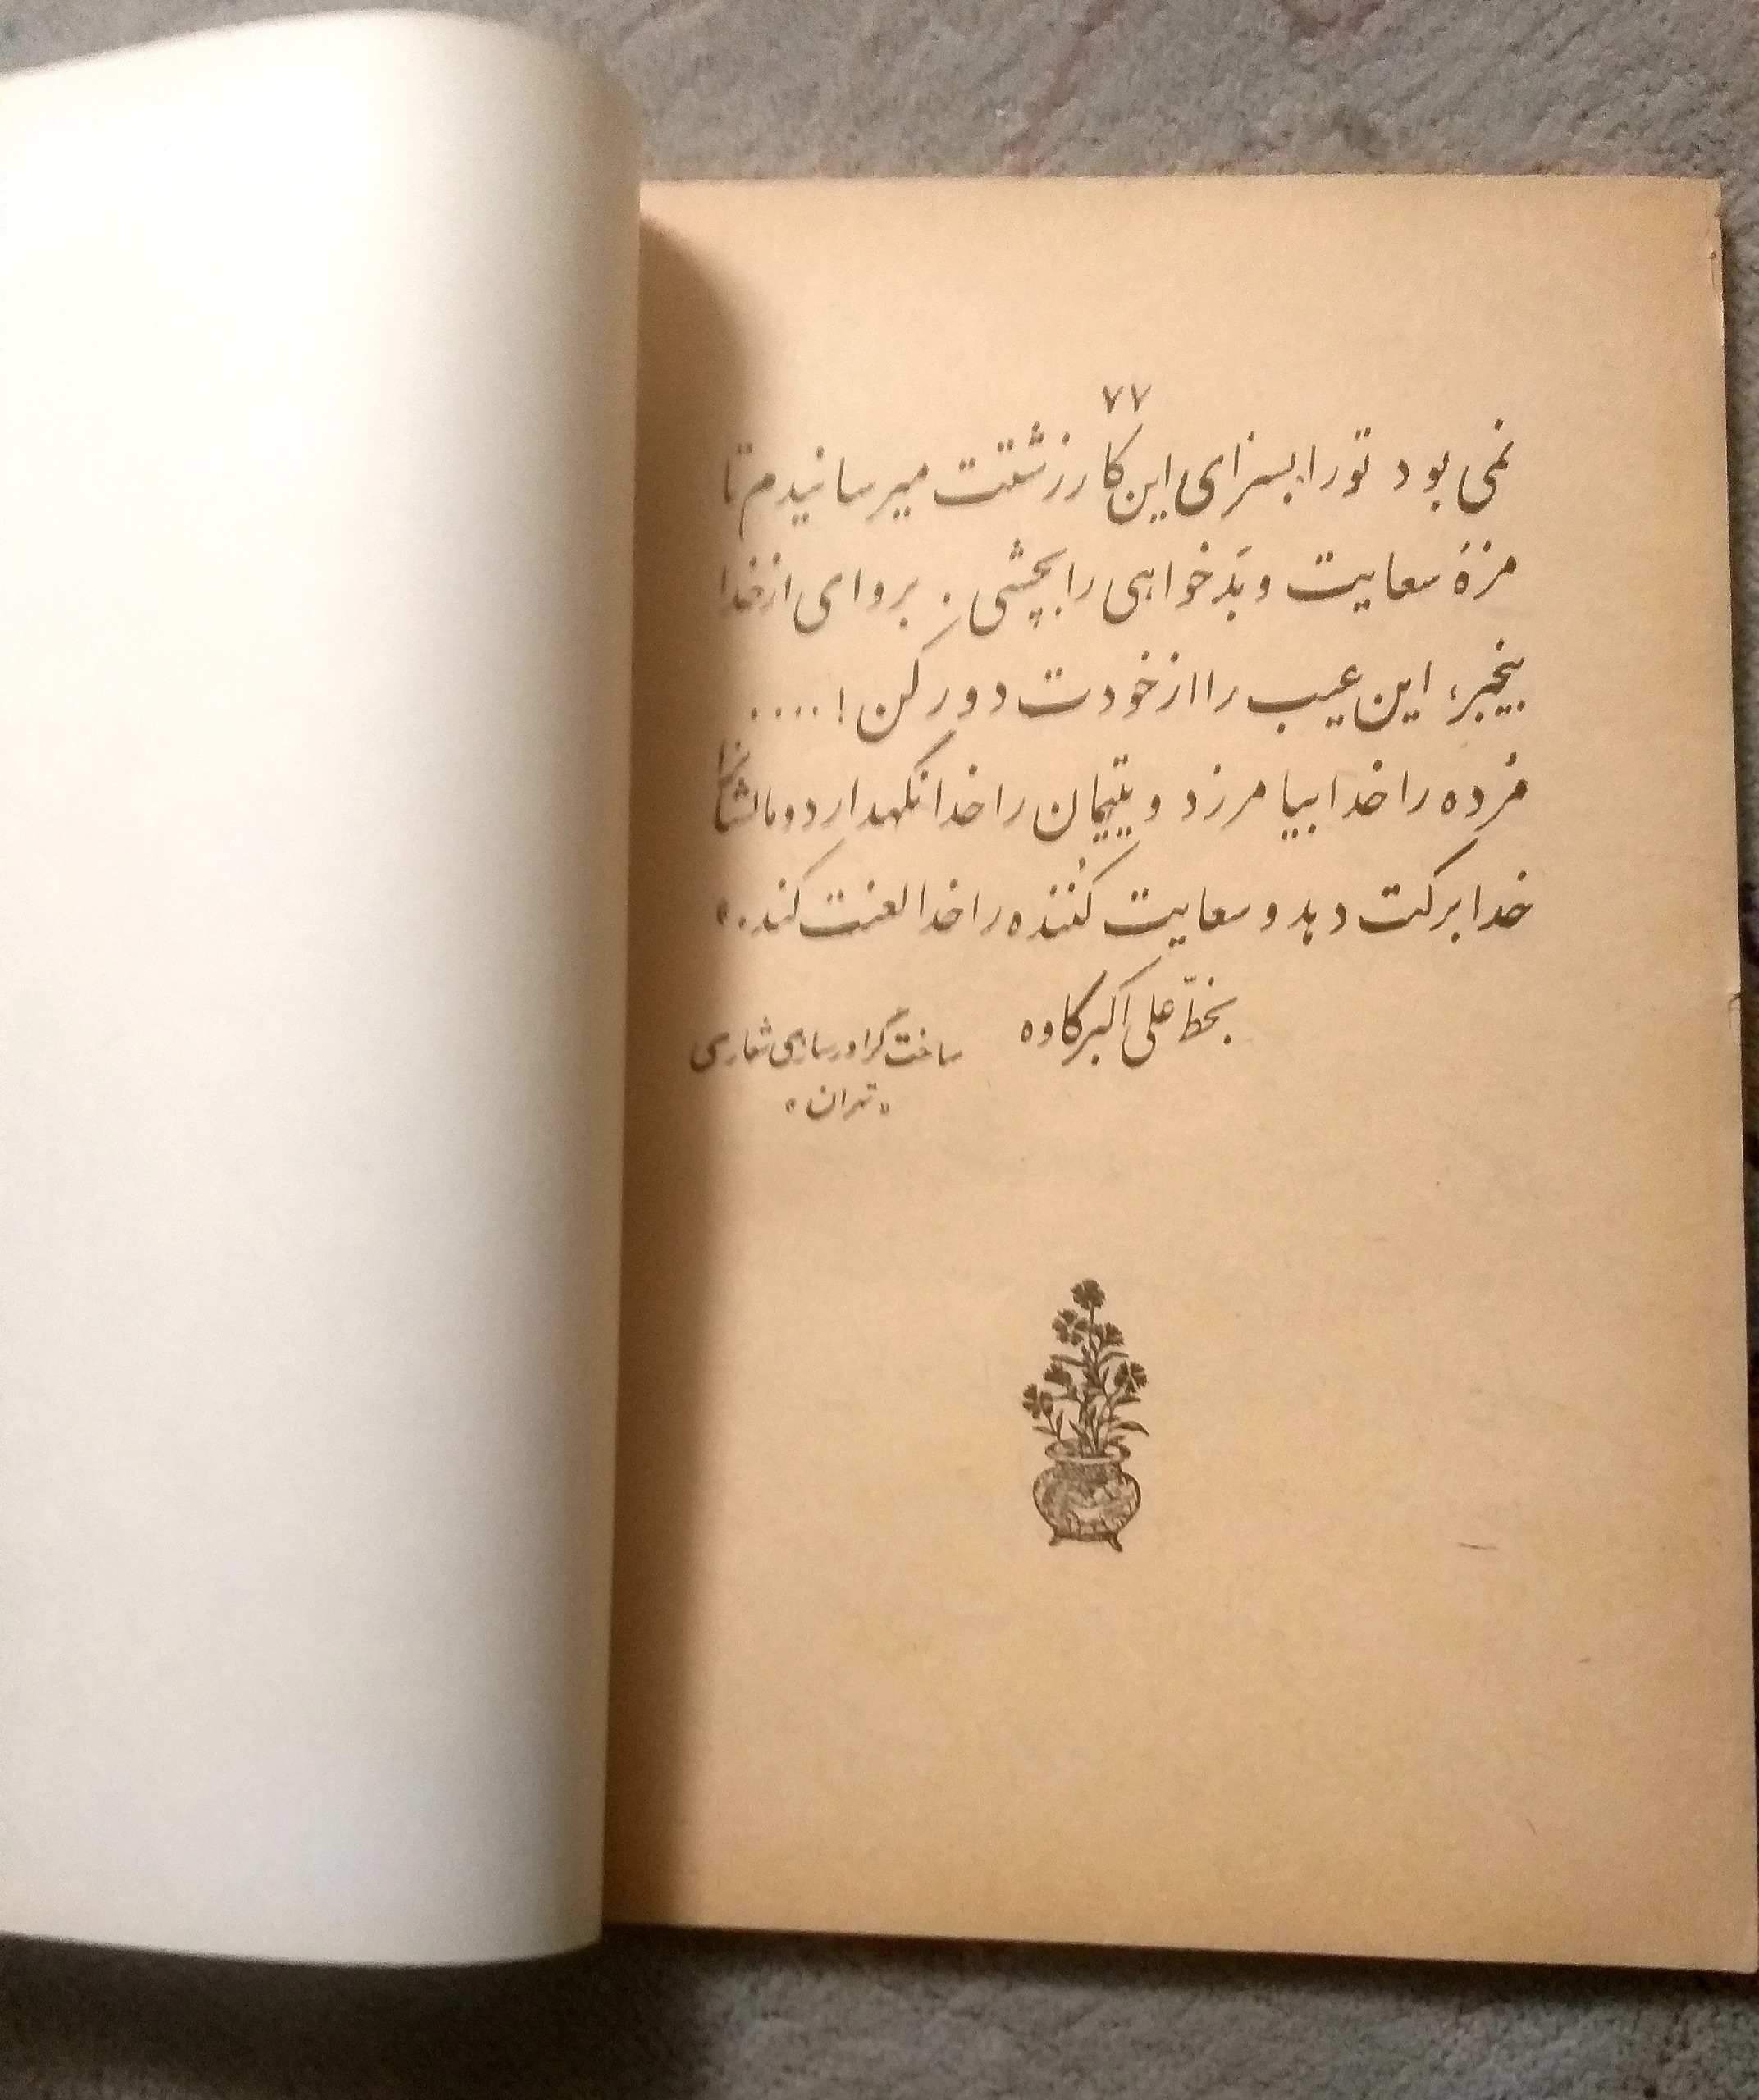 ۷۷
نمی بود تو را بسزای این کار زشتت میرسانیدم تا
مزهٔ سعایت و بَدخواهی را بچشی. برو ای از خدا
بیخبر، این عیب را از خودت دور کن! ....
مُرده را خدا بیامرزد و یتیمان را خدا نگهدارد و مالشانرا
خدا برکت دهد و سعایت کُننده را خدا لعنت کند.»
بخطّ علی اکبر کاوه
ساخت گراورسازی شعاری
«تهران»